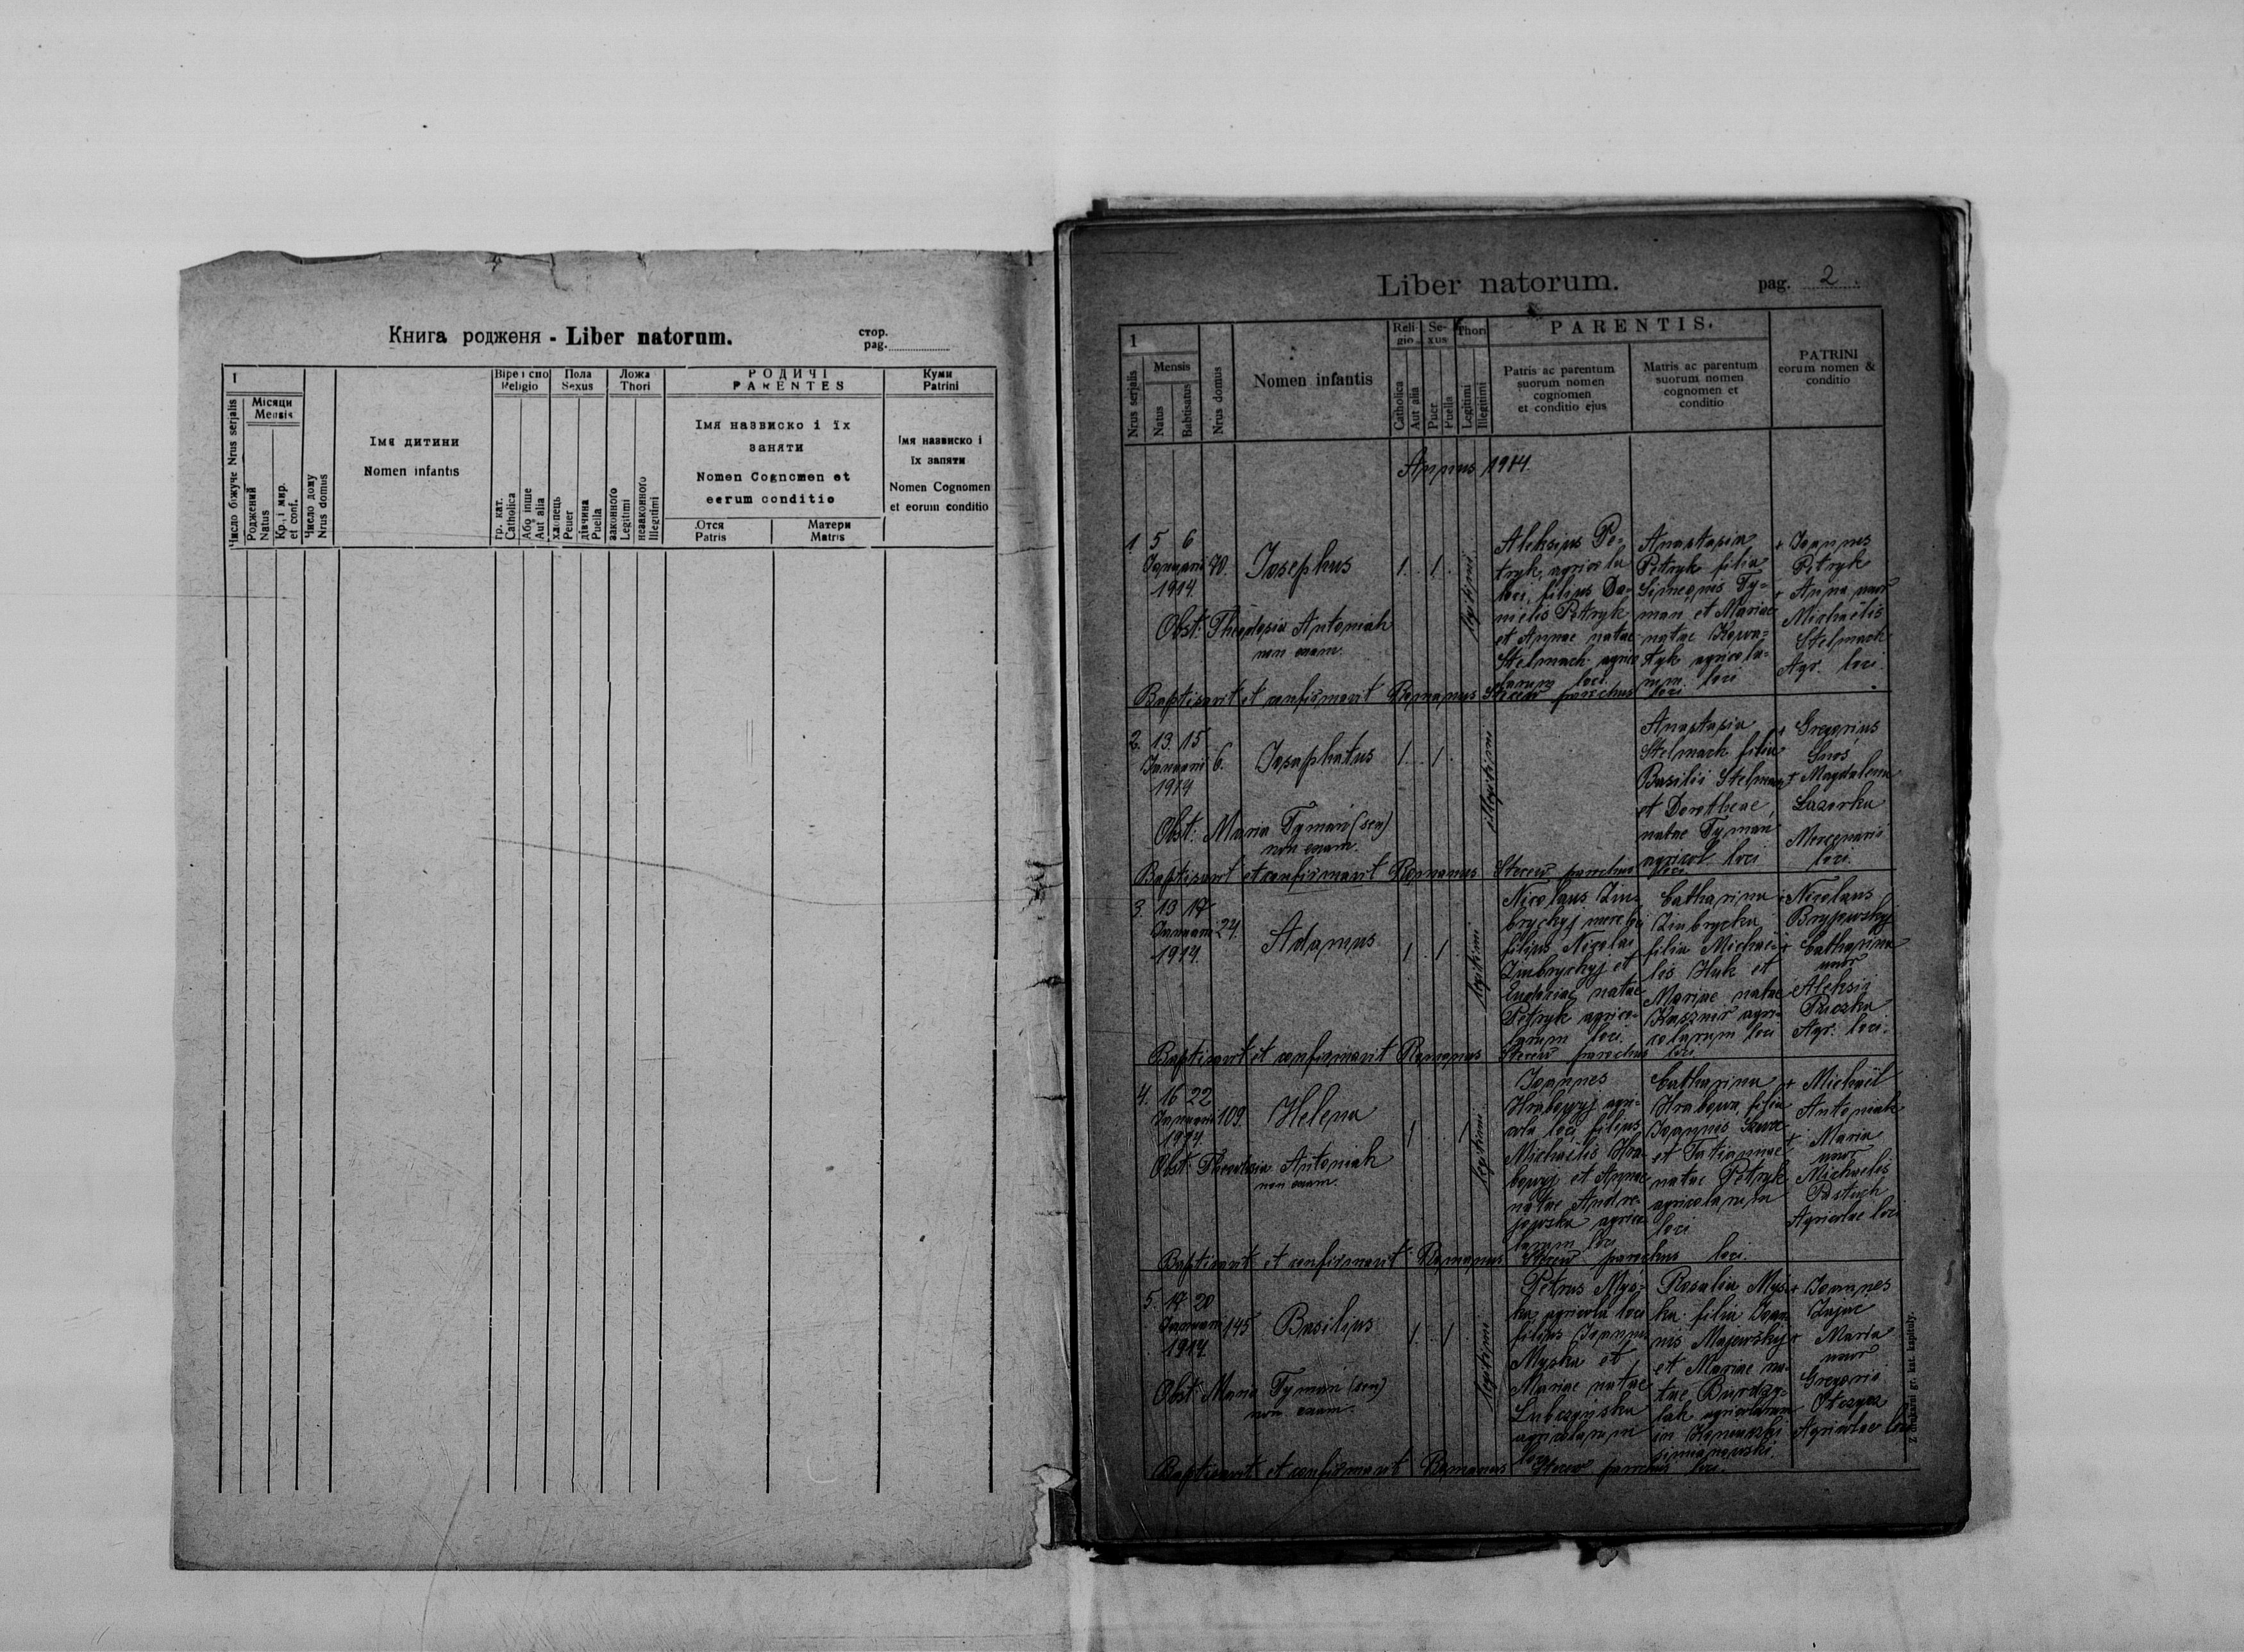 Книга родженя - Liber natorum.
стор.
pag.
1
Місяци
Mensis
Число біжуче Nrus serjalis
Роджений
Natus
Кр. і мир.
et conf.
Число дому
Nrus domus
Імя дитини
Nomen infantis
Religio
гр. кат.
Catholica
Або інше
Aut alia
Пола
Sexus
хлопець
Peuer
дівчина
Puella
Ложа
Thori
законного
Legitimi
незаконного
Illegitimi
РОДИЧІ
PARENTES
Імяназвиско і їх
заняти
Nomen Cognomen et
eerum conditio
Отся
Patris
Матери
Matris
Куми
Patrini
Імя назвиско і
їх заняти
Nomen Cognomen
et eorum conditio
Liber natorum.
pag. 2.
1
Mensis
Nrus serjalis
Natus
Babtisatus
Nrus domus
Nomen infantis
Reli-
gio
Catholica
Aut alia
Se-
xus
Puer
Puella
Thori
Legitimi
Illegitimi
PARENTIS.
Patris ac parentum
suorum nomen
cognomen
et conditio ejus
Matris ac parentum
suorum nomen
cognomen et
conditio
PATRINI
eorum nomen &
conditio
Annus 1914.
1. 5 6
Januarii 70.
1914.
Josephus
1. 1.
legitimi
Obst: Theodosia Antoniak
non exam.
Aleksius Pe-
tryk, agricola
loci, filius Da-
nielis Petryk
et Annae natae
Stelmach agrico
larum loci.
Anastasia
Petryk filia
Simeonis Ty-
man et Mariae
natae Kowa-
agricola-
rum loci
+ Joannes
Petryk
+ Anna uxor
Michaëlis
Stelmach
Agr. loci.
Baptisavit et confirmavit Romanus parochus loci
2. 13. 15
Januarii 6.
1914
Josaphatus
1. 1.
illegitimi
Obst: Maria Tyman (sen)
non exam.
Anastasia
Stelmach filia
Basilii Stelmach
et Dorotheae
natae Tyman
agricol. loci
+ Gregorius
+ Magdalena
Lazorka
Mercenarii
loci.
Baptisavit et confirmavit Romanus parochus loci
3. 13 17
Januarii 24.
1914.
Adamus
1. 1.
legitimi
Nicolaus Zu-
bryckyj
filius Nicolai
Zubryckyj et
natae
Petryk agrico-
larum loci.
Catharina
Zubrycka
filia Michae-
lis Huk et
Mariae natae
agri-
colarum loci
+ Nicolaus
+ Catharina
uxor
Aleksii
Agr. loci.
Baptisavit et confirmavit Romanus parochus loci
4. 16 22
Januarii 109.
1914.
Helena
1 1
legitimi
Obst: Theodosia Antoniak
non exam.
Joannes
Hrabowyj agri-
cola loci filius
Michaëlis Hra-
bowyj et Annae
natae Andre-
jowska agrico
larum loci
Catharina
Hrabowa, filia
Joannis
et Tatiannae
natae Petryk
agricolarum
loci
+ Michaël
Antoniak
+ Maria
uxor
Michaelis
Pastuch
Agricolae loci
Baptisavit et confirmavit Romanus parochus loci.
5. 17 20
Januarii 145
1914.
Basilius
1. 1
legitimi
Obst: Maria Tyman (sen)
non exam.
Petrus Mys-
ka, agricola loci
filius Joannis
Myska et
Mariae natae
agricolarum
loci
Rosalia Mys-
ka filia Joan
nis Majewskyj
et Mariae na-
tae
agricolarum
in
+ Joannes
Zajac
+ Maria
uxor
Gregorii
Agricolae loci
Baptisavit et confirmavit Romanus parochus loci.
Z drukarni gr. kat. kapituły.